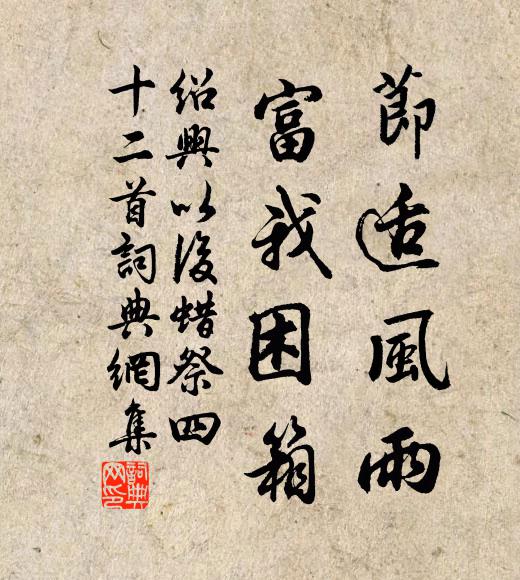 節适風雨
富我困箱
紹興以後蜡祭四
十二首詞典網集
詞典網印